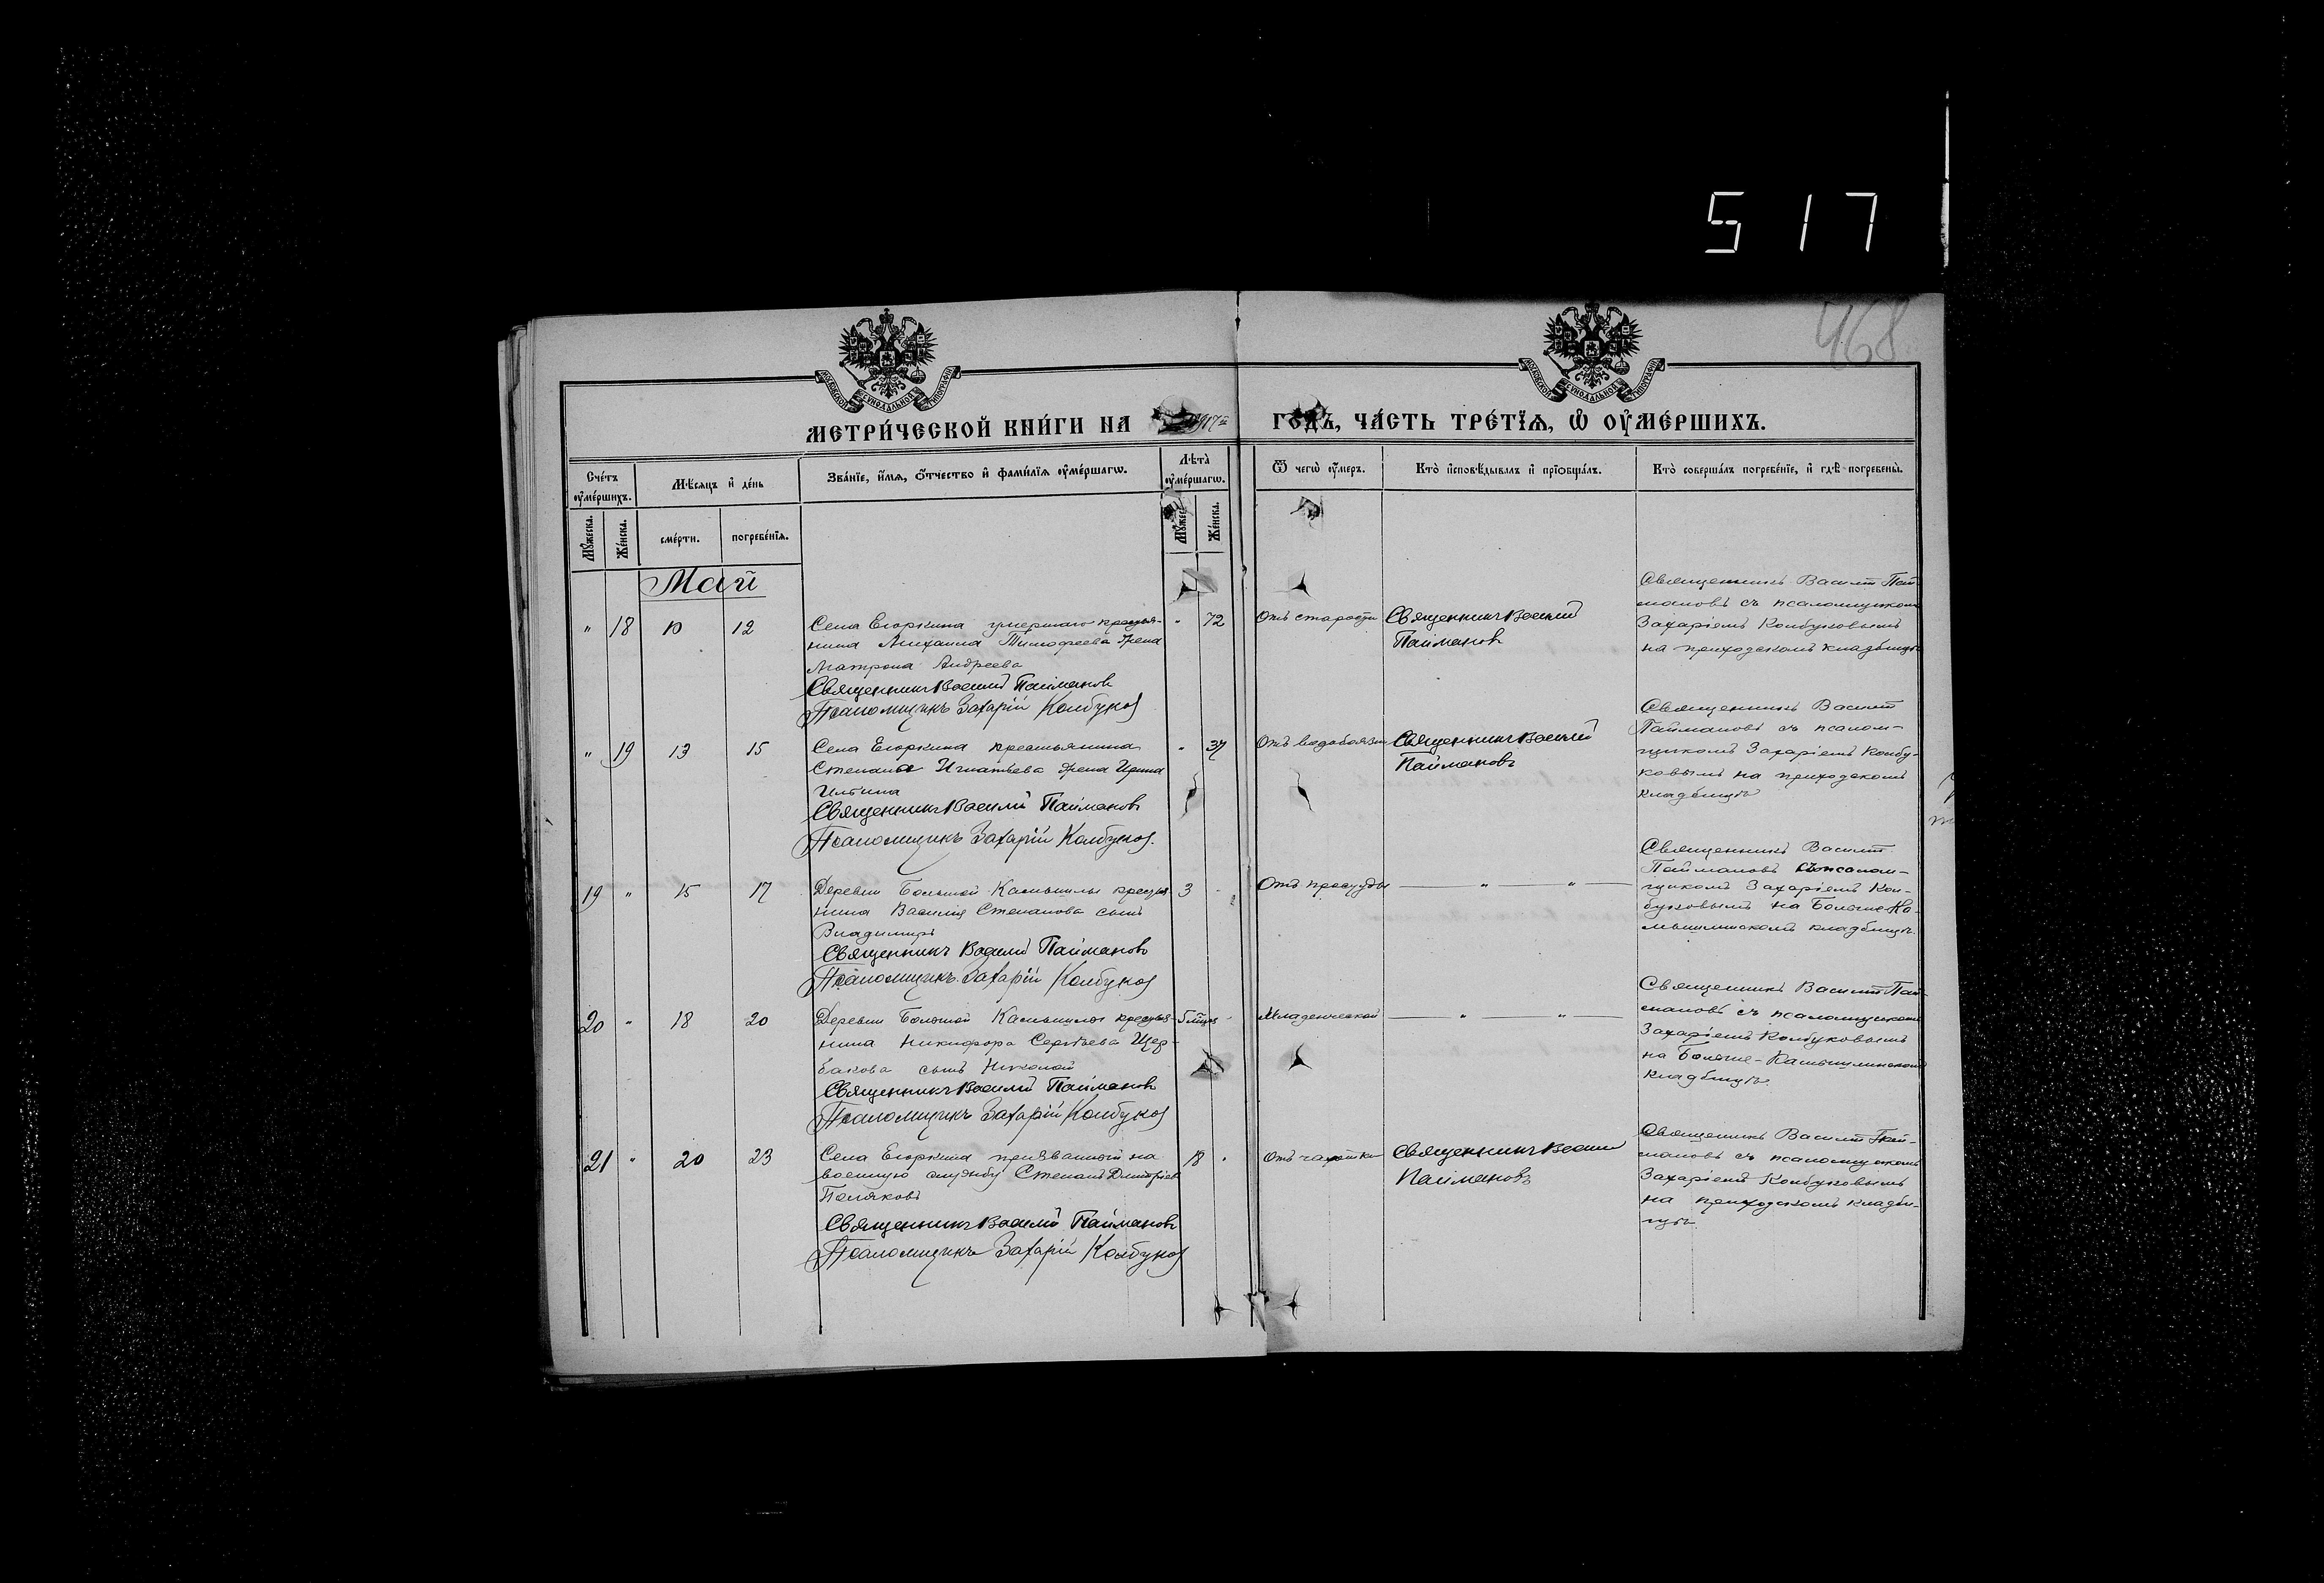 517
468
МОСКОВСКОЙ СѴНОДАЛЬНОЙ ТИПОГРАФІИ
МОСКОВСКОЙ СѴНОДАЛЬНОЙ ТИПОГРАФІИ
МЕТРИ́ЧЕСКОЙ КНИ́ГИ НА 1917й ГОДЪ, ЧА́СТЬ ТРЕ́ТЇѦ, Ѡ҆ ОУ҆МЕ́РШИХЪ.
Сче́тъ оу҆ме́ршихъ.
Мѣ́сяцъ и҆ де́нь
Зва́нїе, и҆́мѧ, ѻ҆́тчество и҆ фами́лїѧ оу҆ме́ршагѡ.
Лѣ́та оу҆ме́ршагѡ.
Ѿ чегѡ̀ оу҆́меръ.
Кто̀ и҆сповѣ́дывалъ и҆ прїѡбща́лъ.
Кто̀ соверша́лъ погребе́нїе, и҆ гдѣ̀ погребены̀.
Мꙋ́жеска.
Же́нска.
сме́рти.
погребе́нїѧ.
Мꙋ́жес
Же́нска.
Май
" 18 10 12
Села Егоркина умершаго крестья-
нина Михаила Тимофеева жена
Матрона Андреева
Священникъ Василій Паймановъ
Псаломщикъ Захарій Колбуков
" 72
Отъ старости
Священникъ Василій
Паймановъ
Священникъ Василій Пай-
мановъ съ псаломщикомъ
Захаріемъ Колбуковымъ
на приходскомъ кладбищѣ
" 19 13 15
Села Егоркина крестьянина
Степана Игнатьева жена Ирина
Ильина
Священникъ Василій Паймановъ
Псаломщикъ Захарій Колбуков.
" 37
Отъ водобоязни
Священникъ Василій
Паймановъ
Священникъ Василій
Паймановъ съ псалом-
щикомъ Захаріемъ Колбу-
ковымъ на приходскомъ
кладбищѣ
19 " 15 17
Деревни Большой Камышлы крестья-
нина Василія Степанова сынъ
Владимиръ
Священникъ Василій Паймановъ
Псаломщикъ Захарій Колбуков
3 "
Отъ простуды
— " — " —
Священникъ Василій
Паймановъ съ псалом-
щикомъ Захаріемъ Кол-
буковымъ на Больше-Ка-
мышлинскомъ кладбищѣ.
20 " 18 20
Деревни Большой Камышлы крестья-
нина Никифора Сергѣева Щер-
бакова сынъ Николай
Священникъ Василій Паймановъ
Псаломщикъ Захарій Колбуков
Младенческой
— " — " —
Священникъ Василій Пай-
мановъ съ псаломщикомъ
Захаріемъ Колбуковымъ
на Больше-Камышлинскомъ
кладбищѣ.
21 " 20 23
Села Егоркина призванный на
военную службу Степанъ Димитріевъ
Поляковъ
Священникъ Василій Паймановъ
Псаломщикъ Захарій Колбуков
18 "
Отъ чахотки
Священникъ Васили
Паймановъ
Священникъ Василій Пай-
мановъ съ псаломщикомъ
Захаріемъ Колбуковымъ
на приходскомъ кладби-
щѣ.